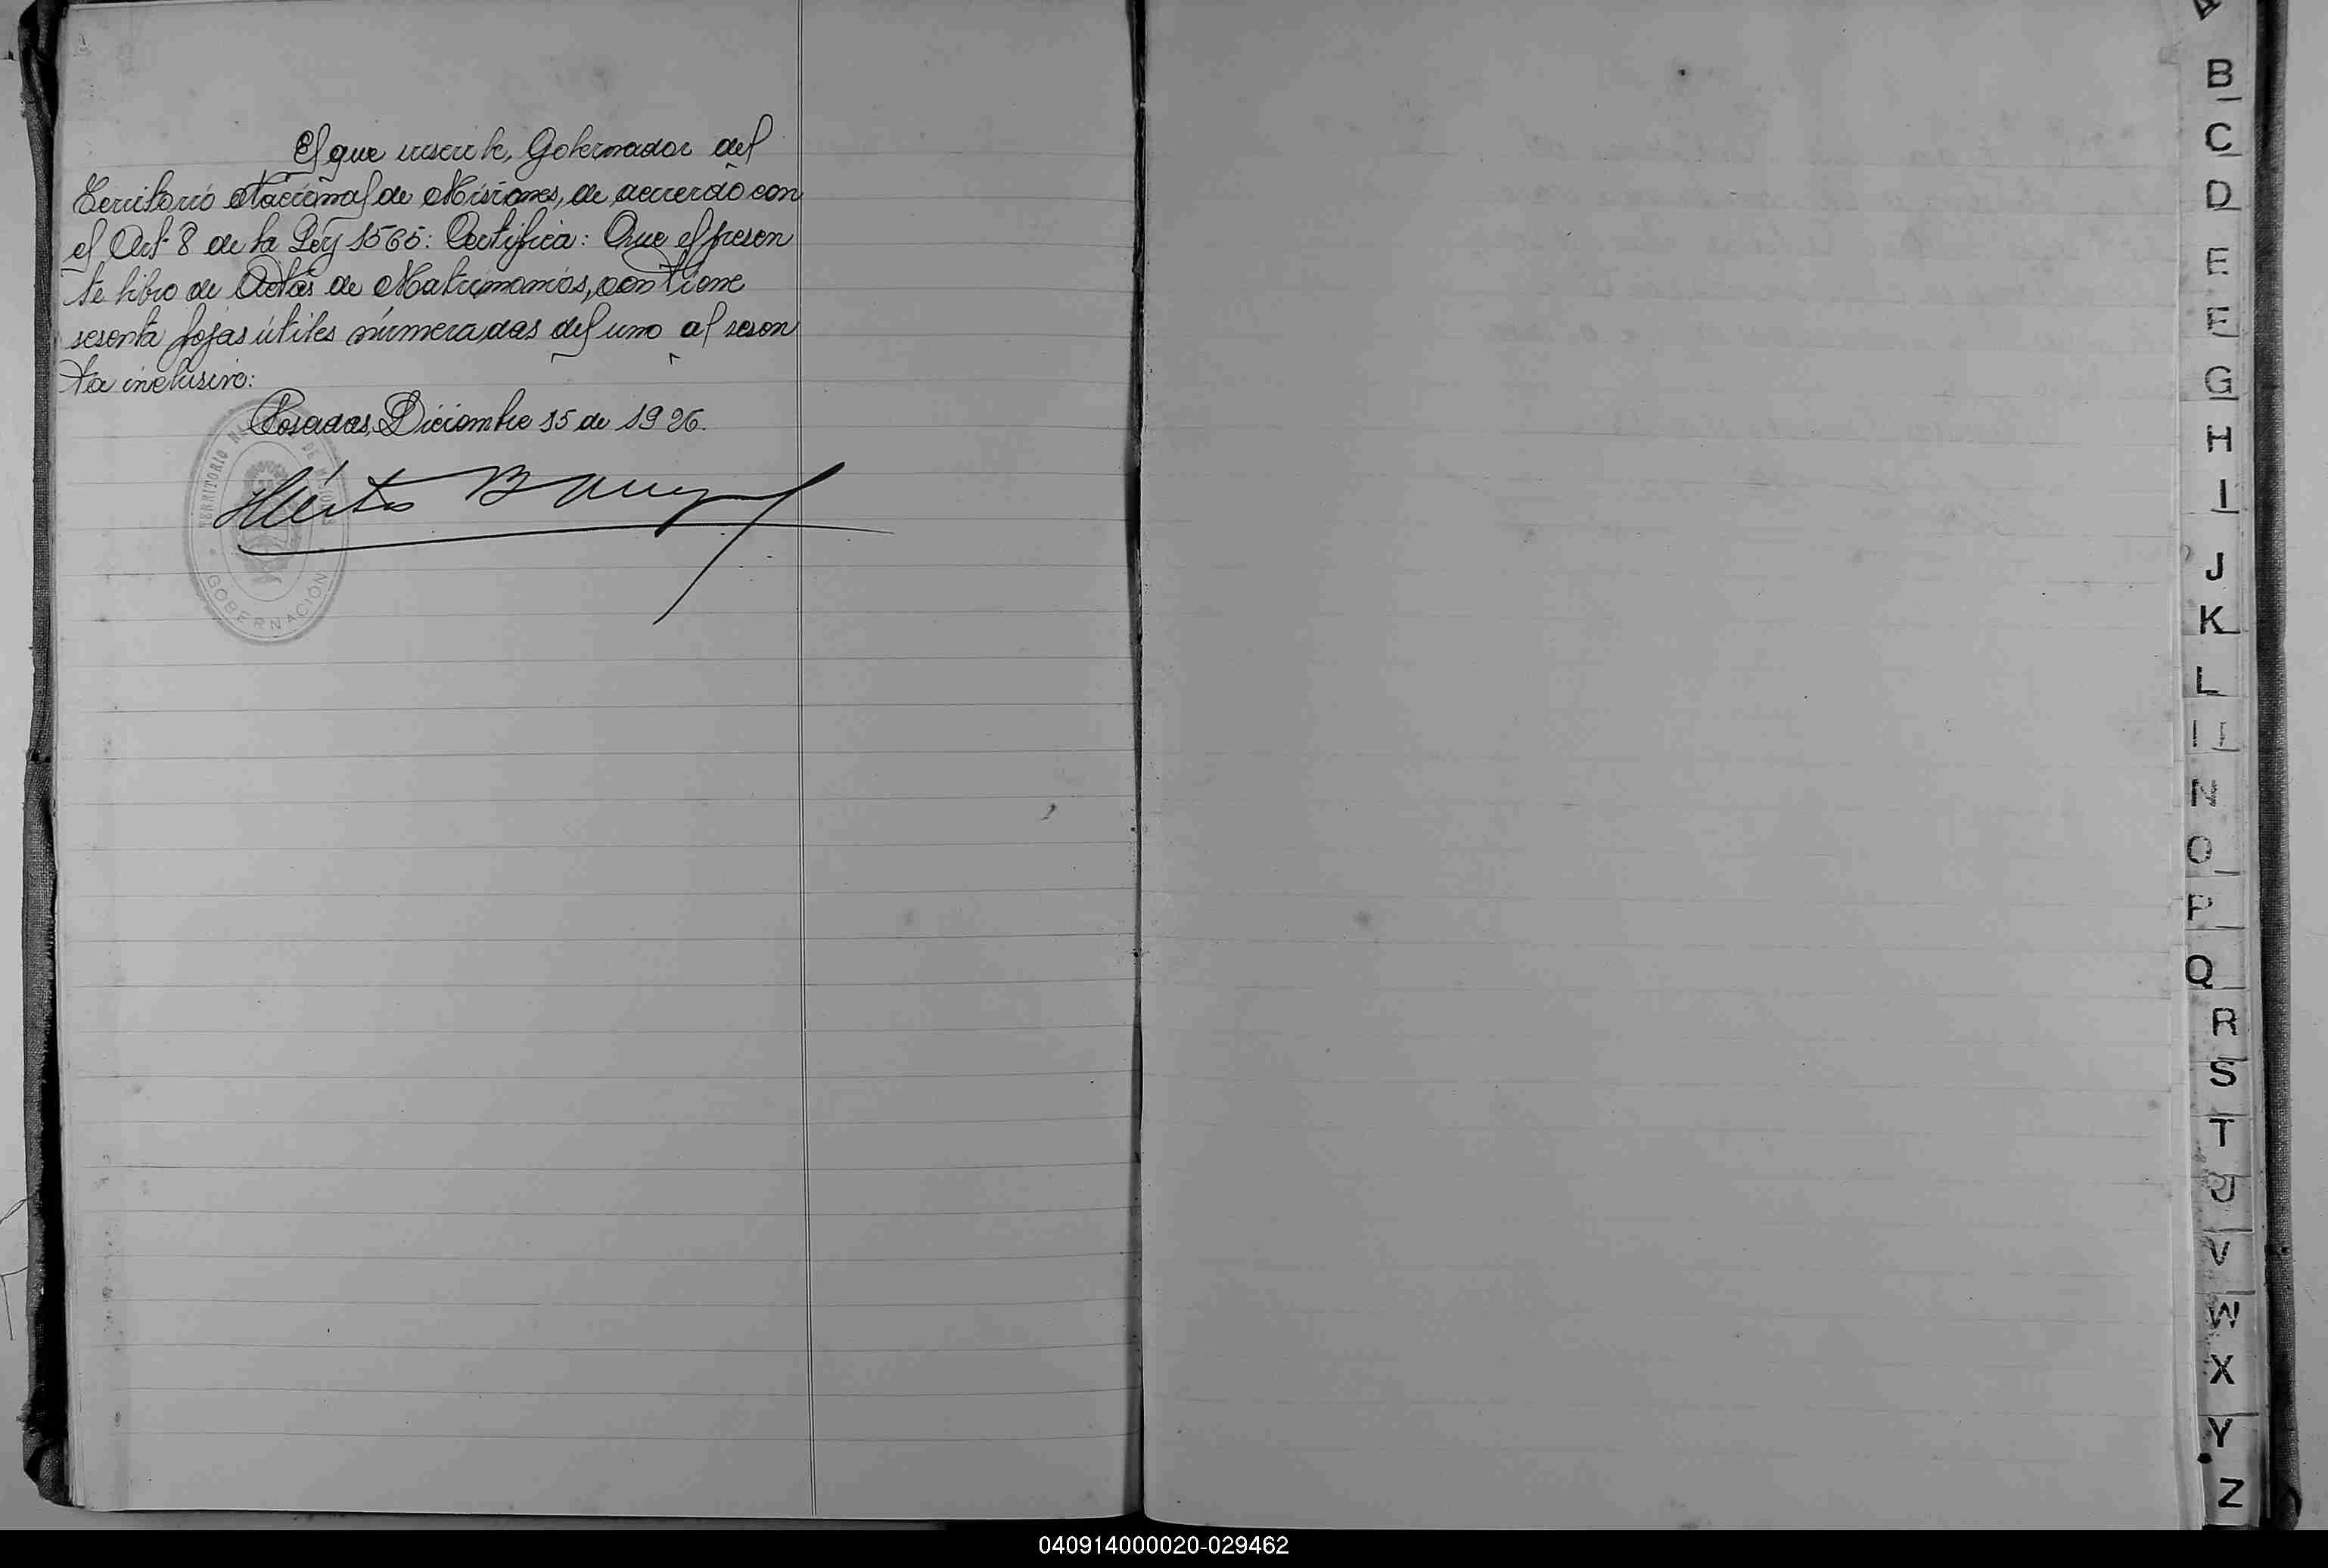 El que suscribe, Gobernador del
Territorio Nacional de Misiones, de acuerdo con
el Art. 8 de la Ley 1565: Certifica: Que el presen
te libro de Actas de Matrimonios, contiene
sesenta fojas útiles númeradas del uno al sesen
ta inclusive:
Posadas, Diciembre 15 de 1926.
TERRITORIO DE MISIONES
GOBERNACIÓN
Héctor
B
C
D
E
F
G
H
I
J
K
L
N
O
P
Q
R
S
T
U
V
W
X
Y
Z
040914000020-029462